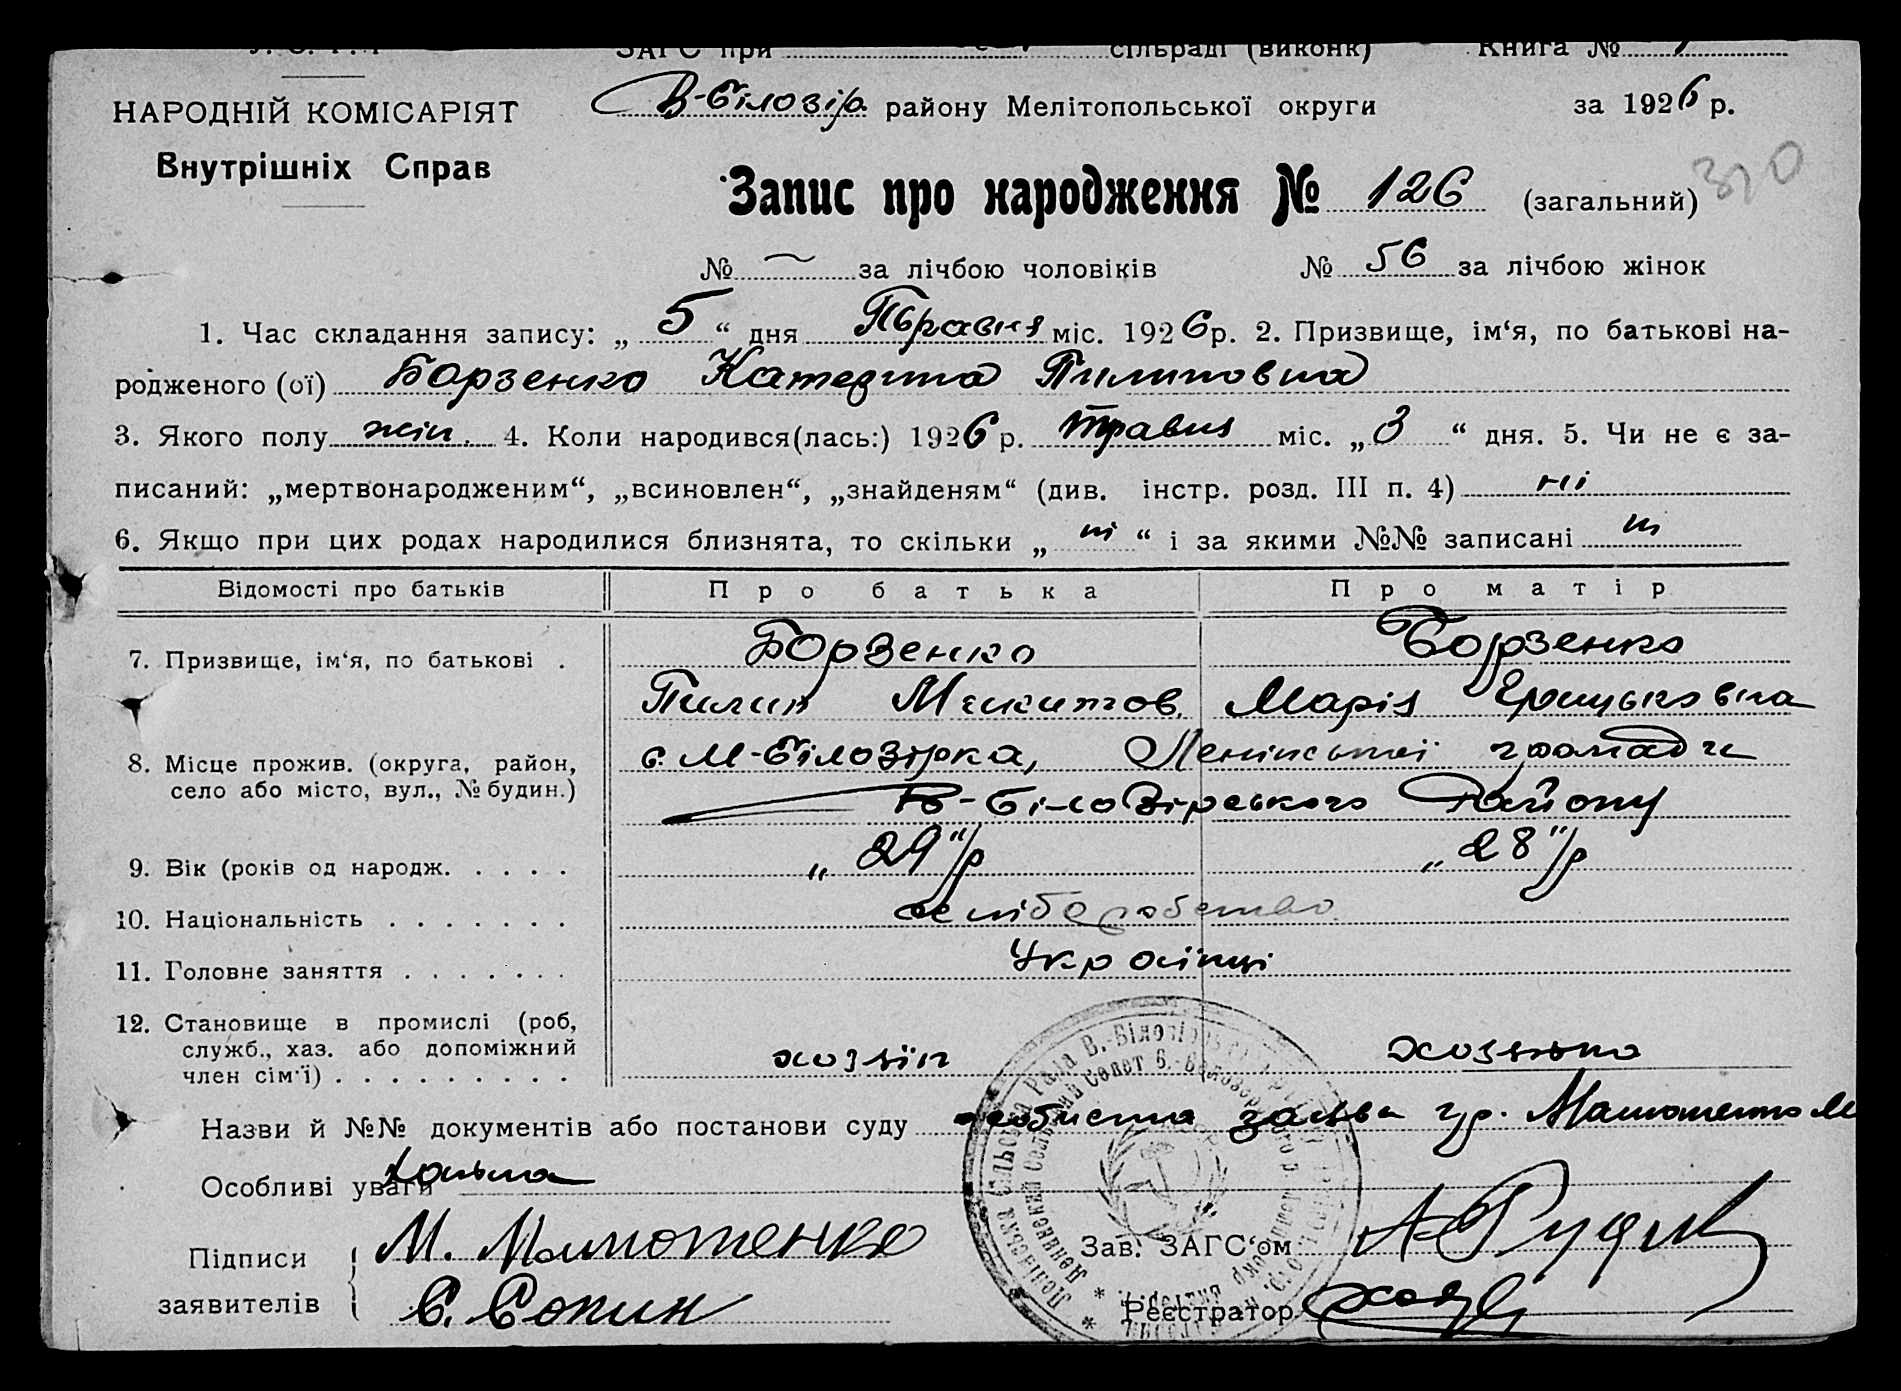 ЗАГС при сільраді (виконк) Книга №
В-Білозір. району Мелітопольської округи за 1926 р.
НАРОДНІЙ КОМІСАРІЯТ
Внутрішніх Справ
Запис про народження № 126 (загальний) 310
№ — за лічбою чоловіків № 56 за лічбою жінок
1. Час складання запису: „ 5 “ дня Травня міс. 1926 р. 2. Призвище, ім‘я, по батькові на-
родженого (ої) Борзенко Катерина Пилиповна
3. Якого полу жін. 4. Коли народився(лась:) 1926 р. травня міс. „ 3 “ дня. 5. Чи не є за-
писаний: „мертвонародженим“, „всиновлен“, „знайденям“ (див. інстр. розд. III п. 4) ні
6. Якщо при цих родах народилися близнята, то скільки „ ні “ і за якими №№ записані ні
Відомості про батьків Про батька Про матір
7. Призвище, ім‘я, по батькові . Борзенко Борзенко
Пилип Микитов. Марія Грицьковна
8. Місце прожив. (округа, район, с. М-Білозірка, Ленінської громади
село або місто, вул., № будин.) В-Білозірського Району
9. Вік (років од народж. . . . . „29“/р „28“/р
10. Національність . . . . . . . хліборобство
11. Головне заняття . . . . . . . Українці
12. Становище в промислі (роб,
служб., хаз. або допоміжний хозяїн хозяйка
член сім‘ї) . . . . . . . . .
Назви й №№ документів або постанови суду особиста заява гр.
Особливі уваги
Підписи М.
заявителів С. Сопин
Зав. ЗАГС‘ом
Реєстратор